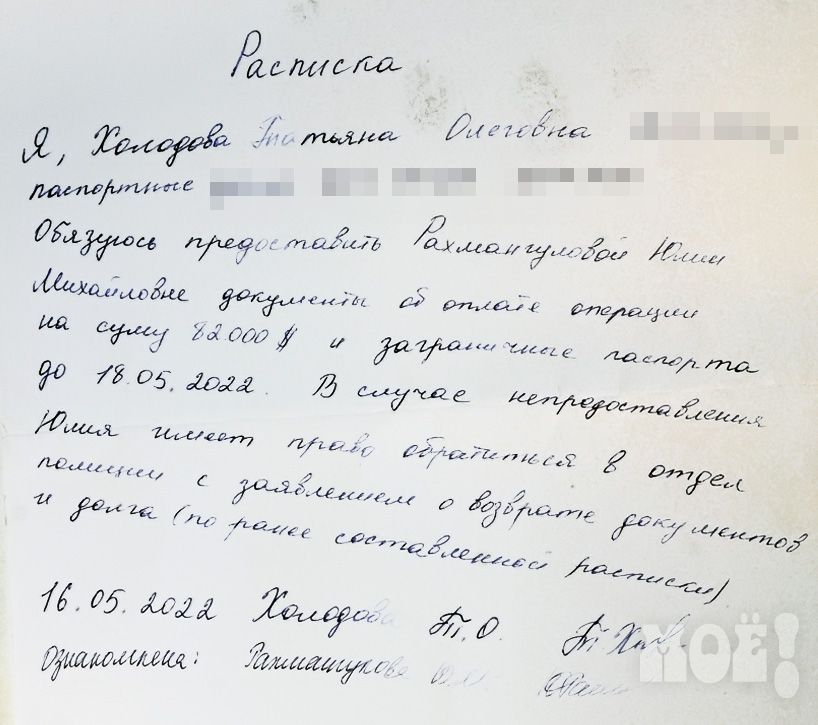 Расписка
Я, Холодова Татьяна Олеговна
паспортные
Обязуюсь предоставить Рахмангуловой Юлии
Михайловне документы об оплате операции
на сумму 82.000 $ и заграничные паспорта
до 18.05.2022. В случае непредоставления
Юлия имеет право обратиться в отдел
полиции с заявлением о возврате документов
и долга (по ранее составленной расписки)
16.05.2022 Холодова Т.О.
Ознакомлена: Ю.М.
МОЁ!